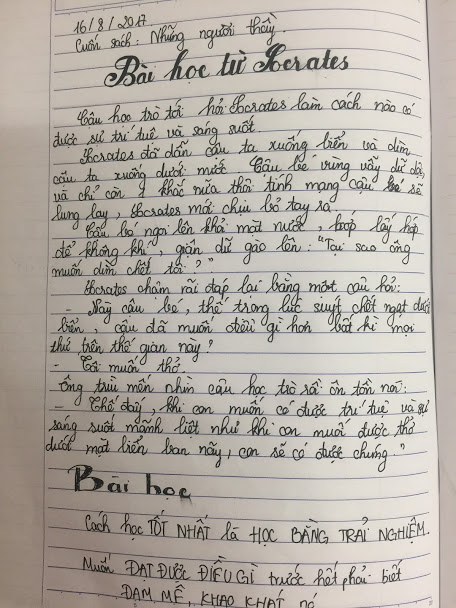 16/8/2017
Cuốn sách: Những người thầy.
Bài học từ Socrates
Cậu học trò tới hỏi Socrates làm cách nào có
được sự trí tuệ và sáng suốt.
Socrates đã dẫn cậu ta xuống biển và dìm
cậu ta xuống dưới nước. Cậu bé vùng vẫy dữ dội,
và chỉ còn 1 khắc nữa thôi tính mạng cậu bé sẽ
lung lay, Socrates mới chịu bỏ tay ra.
Cậu bé ngoi lên khỏi mặt nước, hớp lấy hớp
để không khí, giận dữ gào lên: "Tại sao ông
muốn dìm chết tôi?"
Socrates chậm rãi đáp lại bằng một câu hỏi:
- Này cậu bé, thế trong lúc suýt chết ngạt dưới
biển, cậu đã muốn điều gì hơn bất kì mọi
thứ trên thế gian này?
- Tôi muốn thở.
- Ông trìu mến nhìn cậu học trò rồi ôn tồn nói:
- Thế đấy, khi con muốn có được trí tuệ và sự
sáng suốt mãnh liệt như khi con muốn được thở
dưới mặt biển ban nãy, con sẽ có được chúng."
Bài học
Cách học TỐT NHẤT là HỌC BẰNG TRẢI NGHIỆM.
Muốn ĐẠT ĐƯỢC ĐIỀU GÌ trước hết phải biết
ĐAM MÊ, KHAO KHÁT nó